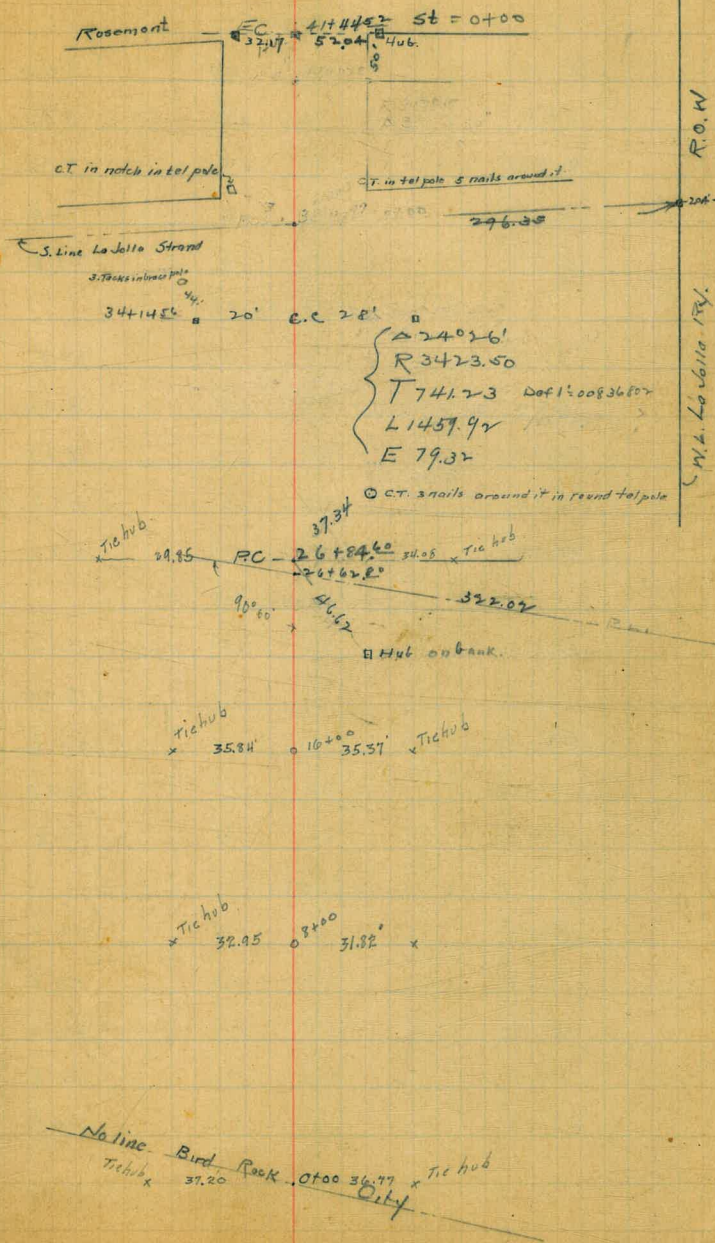 Rosemont E.C. 41+44.52 St = 0+00
32.17 52.04 Hub.
50
R.O.W
C.T. in notch in tel pole
C.T. in tel pole 5 nails around it
296.35
S. Line La Jolla Strand
3. Tacks in brace pole
44.
34+14.56 20' C.C 28'
Δ 24°26'
R 3423.50
T 741.23 Def 1'=.00836802
L 1459.92
E 79.32
W.L. La Jolla Ry.
C.T. 3 nails around it in round tel pole
37.34
Tie hub 29.85 P.C - 26+84.60 34.08 Tie hub
26+62.80
90° 00' 46.62 322.02
Hub on bank.
Tie hub 35.84' 16+00 35.37' Tie hub
Tie hub 32.95 8+00 31.82'
No line Bird Rock City
Tie hub 37.20 0+00 36.77 Tie hub